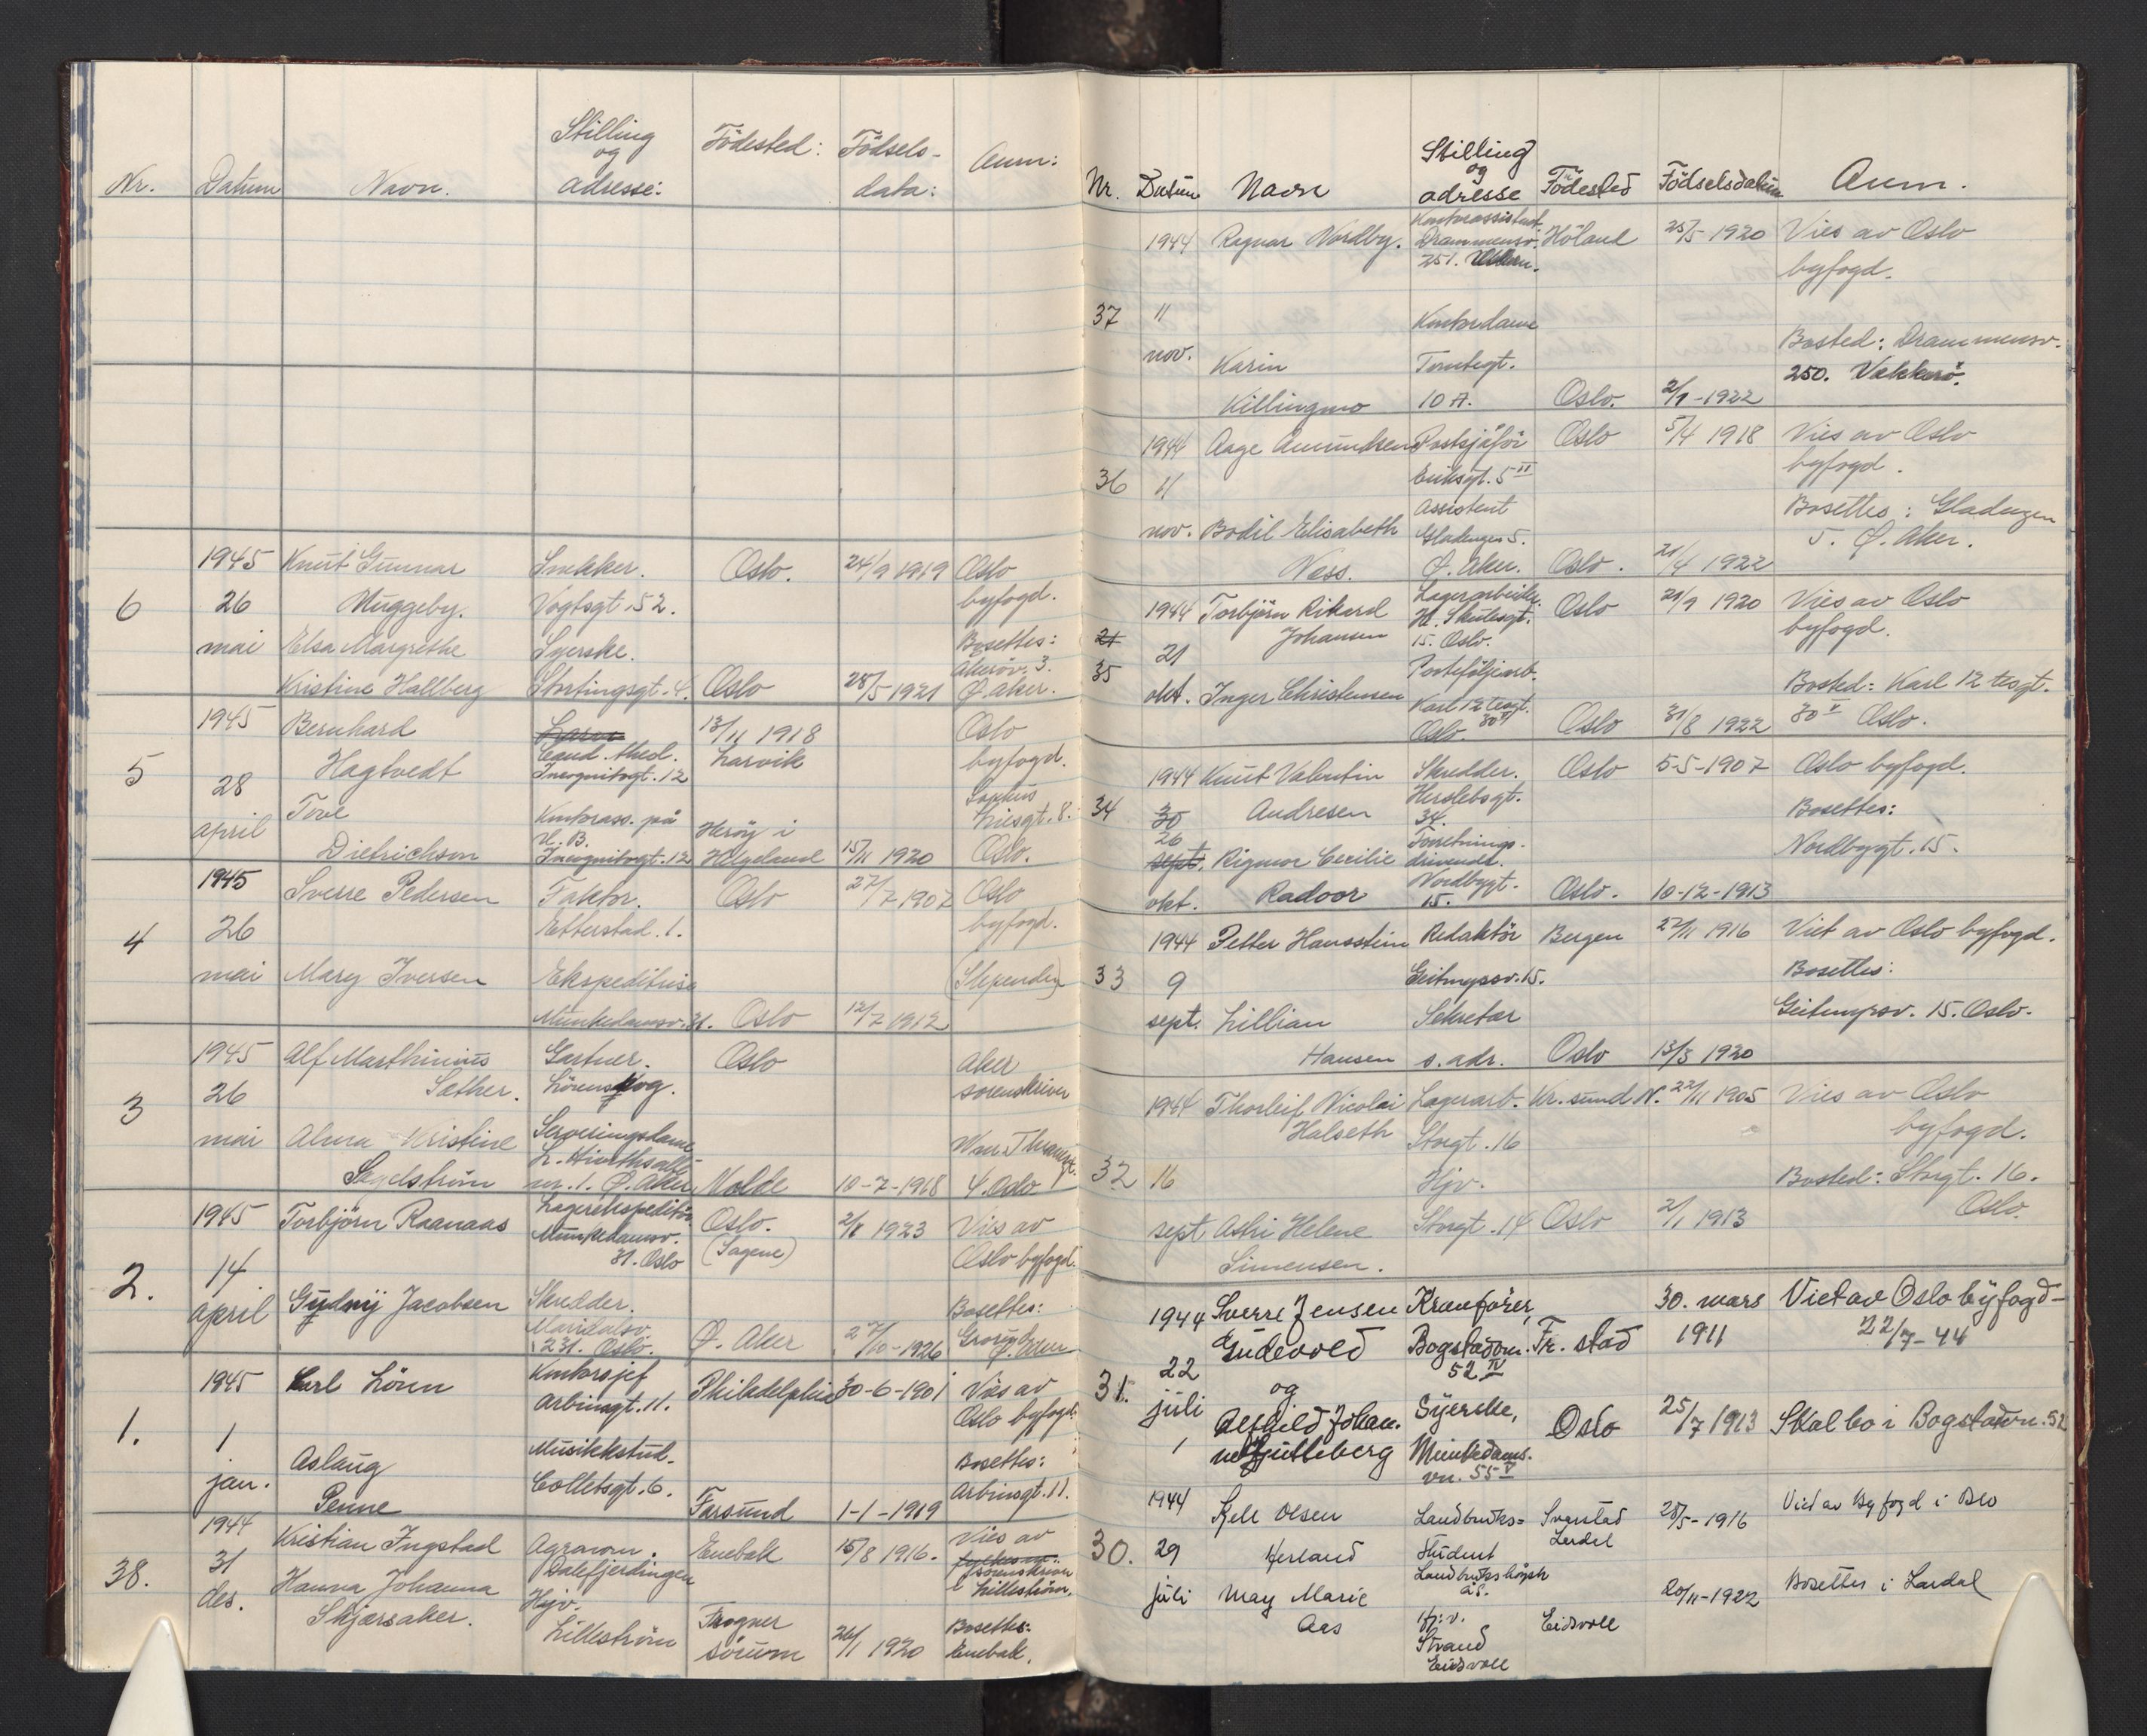 Nr. Datum Navn. Stilling og adresse: Födested: Födsels-data: Anm:
1945 Knut Gunnar Snekker. Oslo. 24/9 1919 Oslo
6 26 Muggeby. Vogtsgt. 52. byfogd.
mai Elsa Margrethe Syerske. Bosettes:
Akersv. 3.
Kristine Hallberg Stortingsgt. 4. Oslo 28/5 1921 Ø. Aker.
1945 Bernhard 13/11 1918 Oslo
5 Hagtvedt Cand. theol. Larvik byfogd.
28 Incognitogt. 12
april Tove Kontorass. på Herøy i Sophus Liesgt. 8.
H. B.
Dietrichson Incognitogt. 12 Helgeland 15/11 1920 Oslo.
1945 Sverre Pedersen Faktor. Oslo 27/7 1907 Oslo
4 26 Etterstad. 1. byfogd.
mai Mary Iversen Ekspeditrise (Slependen)
Munkedamsv. 31. Oslo 12/7 1912
1945 Alf Marthinius Gartner. Oslo Aker
3 26 Sæther. Lörenskog. sorenskriver
mai Alma Kristine Serveringsdame
Segelström nr. 1. Ø. Aker Molde 10-7-1918 4. Oslo
1945 Torbjörn Raanaas Lagerekspeditör Oslo. 2/8 1923 Vies av
Munkedamsv. 31. Oslo (Sagene) Oslo byfogd.
2. 14
april Gudny Jacobsen Skredder. Bosettes:
Maridalsv. 231. Oslo. Ø. Aker 27/10-1926
1945 Carl Lören Kontorsjef Philadelphia 30-6-1901 Vies av
Arbinsgt. 11. Oslo byfogd.
1. 1
jan. Aslaug Musikkstud. Bosettes:
Penne Colletsgt. 6. Farsund 1-1-1919 Arbinsgt. 11.
1944 Kristian Ingstad Agronom. Enebak 15/8 1916. Vies av
38. 31 Dalefjerdingen sorenskriver
des. Hanna Johanna Hjv. i Lilleström.
Skjærsaker. Lilleström Frogner Bosettes:
Sörum 26/1 1920 Enebak.
Nr. Datum Navn Stilling og adresse Födested Födselsdatum Anm.
1944 Ragnar Nordby. Kontorassistent Höland 25/5 1920 Vies av Oslo
Drammensv. byfogd.
251.
37 11 Kontordame
nov. Karin Tomtegt. Bosted: Drammensv.
Killingmo 10 A. Oslo. 2/1-1922 250. Vækkerö.
1944 Aage Amundsen Postsjåför Oslo 5/4 1918 Vies av Oslo
36 11 Eriksgt. 5 II byfogd.
Assistent Bosettes: Gladengen
nov. Bodil Elisabeth Gladengen 5. 5. Ø. Aker.
Næss. Ø. Aker. Oslo. 21/4 1922
1944 Torbjörn Rikard Lagerarbeider. Oslo 21/9 1920 Vies av Oslo
21 Johansen H. Skutesgt. byfogd.
21 15. Oslo.
35 Porteföljearb.
okt. Inger Christensen Karl 12 tesgt. Bosted: Karl 12 tesgt.
Oslo. 30 V Oslo 31/8 1922 30 V Oslo.
1944 Knut Valentin Skredder. Oslo 5-5-1907 Oslo byfogd.
34 30 Andresen Herslebsgt. Bosettes:
26 34.
sept. Rigmor Cecilie Forretnings- Nordbygt. 15.
drivende.
okt. Radoor Nordbygt. 15. Oslo. 10-12-1913
1944 Petter Hansstein Redaktör Bergen 27/11 1916 Viet av Oslo byfogd.
33 9 Geitmyrsv. 15. Bosettes:
sept. Lillian Sekretær Geitmyrsv. 15. Oslo.
Hansen s. adr. Oslo 13/3 1920
1944 Thorleif Nicolai Lagerarb. Kr. sund N. 22/11 1905 Vies av Oslo
Halseth Storgt. 16 byfogd.
32 16 Hjv. Bosted: Storgt. 16.
sept Astri Helene Storgt. 14 Oslo 2/1 1913 Oslo.
Simensen.
1944 Sverre Jensen Kranförer, 30. mars Viet av Oslo byfogd-
Gudevold Bogstadvn. Fr. stad 1911 22/7-44
22 52 IV
31. og
juli Alfhild Johan- Syerske, Oslo 25/7 1913 Skal bo i Bogstadvn. 52
ne Gulleberg Munkedams-
vn. 55 V
1944 Kjell Olsen Landbruks= 28/5-1916 Viet av Byfogd i Oslo
30. 29 Herland Student
Landbrukshögsk
juli May Marie Ås. 20/11-1922 Bosettes i
Aas Hj.v. Eidsvoll
Strand
Eidsvoll